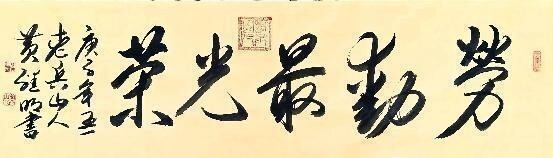 勞動最光荣
庚子年五一
老兵山人
黄继明書